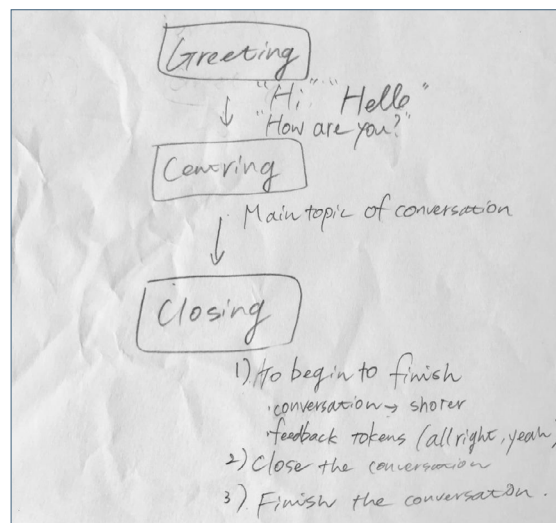 Greeting
"Hi" "Hello"
"How are you?"
Centring
Main topic of conversation
Closing
1) to begin to finish
conversation → shorer
feedback tokens (all right, yeah)
2) Close the conversation
3) Finish the conversation.